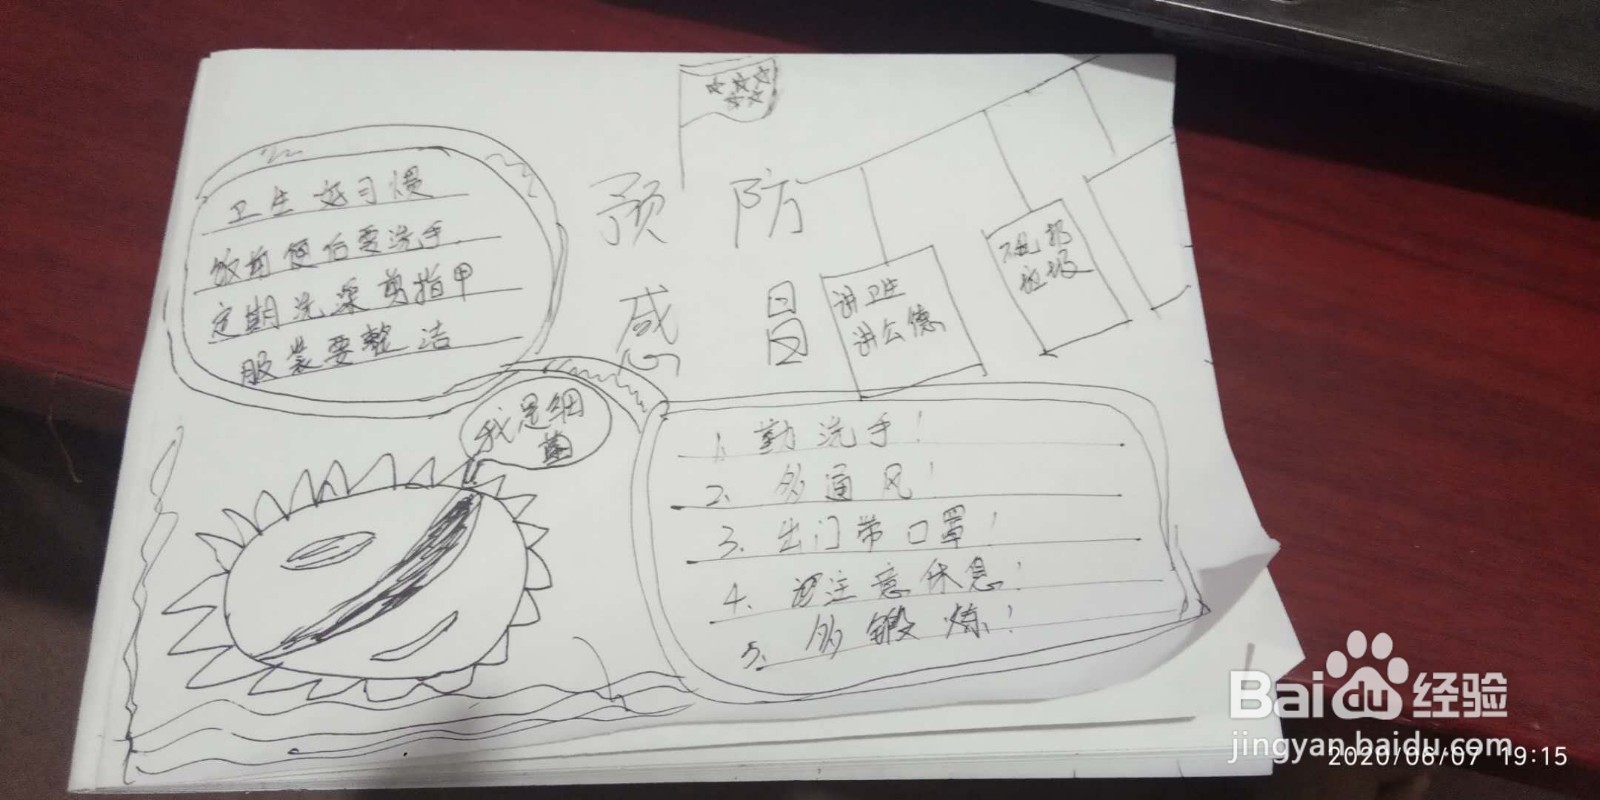 卫生好习惯
饭前便后要洗手
定期洗澡剪指甲
服装要整洁
预防
感冒
讲卫生
讲公德
不乱扔
垃圾
我是细
菌
1、勤洗手！
2、多通风！
3、出门带口罩！
4、要注意休息！
5、多锻炼！
Baidu经验
jingyan.baidu.com
2020/06/07 19:15